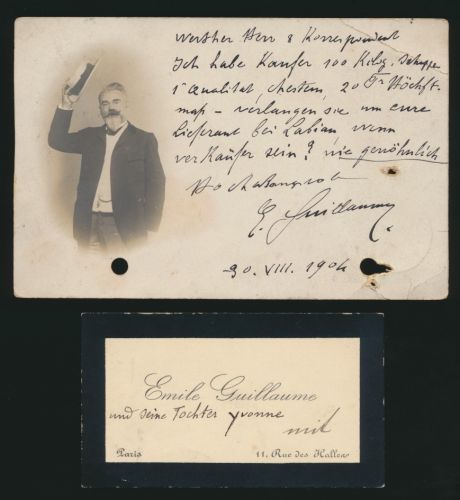 Werther Herr & Korrespondent
Ich habe Käufer 100 Kilog.
1ª Qualität, 20 Fr Höchst-
maß – verlangen sie um eure
Lieferant bei Labian, wenn
verkäufer sein? wie gewöhnlich
Hochachtungsvoll
E. Guillaume
30. VIII. 1904
Emile Guillaume
und seine Tochter Yvonne
mit
Paris
11, Rue des Halles